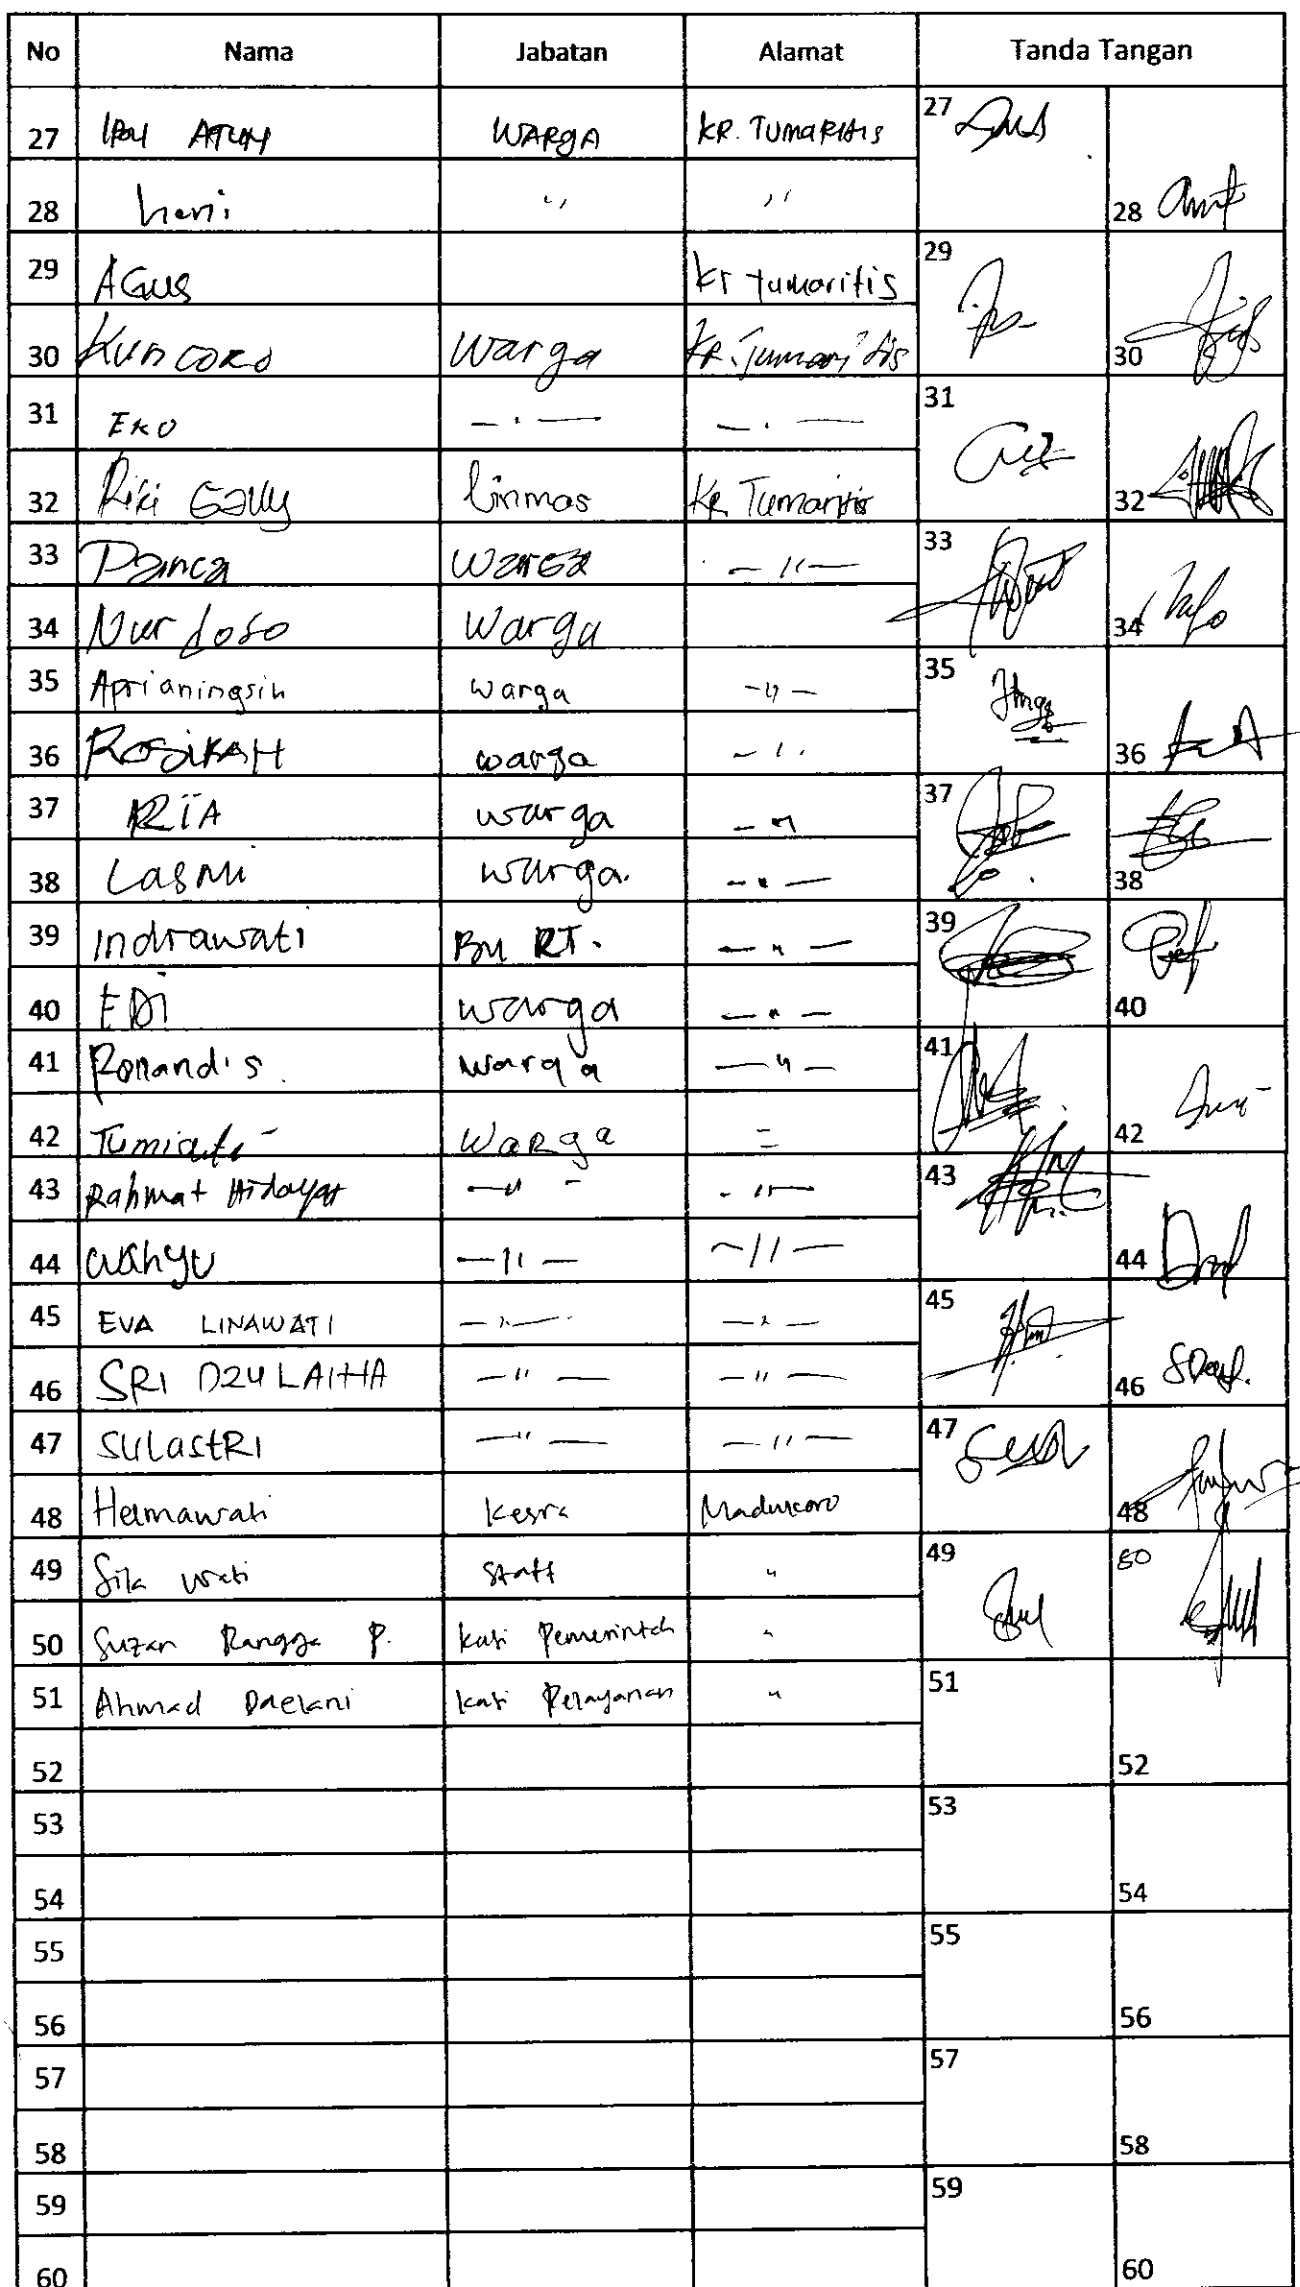 No Nama Jabatan Alamat Tanda Tangan
27 WARGA KR. TUMARITIS 27
28 heni " " 28
29 AGUS Kr tumaritis 29
30 KUNCORO Warga KR. Tumaritis 30
31 EKO — " — — " — 31
32 Riki Linmas KR. Tumaritis 32
33 Panca WARGA — " — 33
34 Nur Warga 34
35 Aprianingsih warga — " — 35
36 ROSIKAH warga — " 36
37 RIA warga — " 37
38 Lasmi warga. — " — 38
39 Indrawati Bu RT. — " — 39
40 EDI warga — " — 40
41 warga — " — 41
42 Tumiati WARGA = 42
43 Rahmat Hidayat — " — — " — 43
44 wahyu — " — — " — 44
45 EVA LINAWATI — " — — " — 45
46 SRI DZULAIHA — " — — " — 46
47 SULASTRI — " — — " — 47
48 Helmawati Kesra Madukoro 48
49 Sila wati Staff " 49
50 Suzan Rangga P. kasi Pemerintah " 50
51 Ahmad Daelani kasi Pelayanan " 51
52 52
53 53
54 54
55 55
56 56
57 57
58 58
59 59
60 60